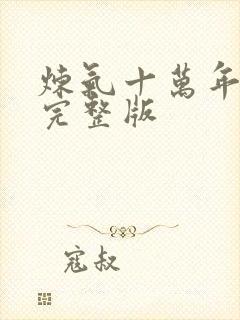 煉氣十萬年
完整版
寇叔